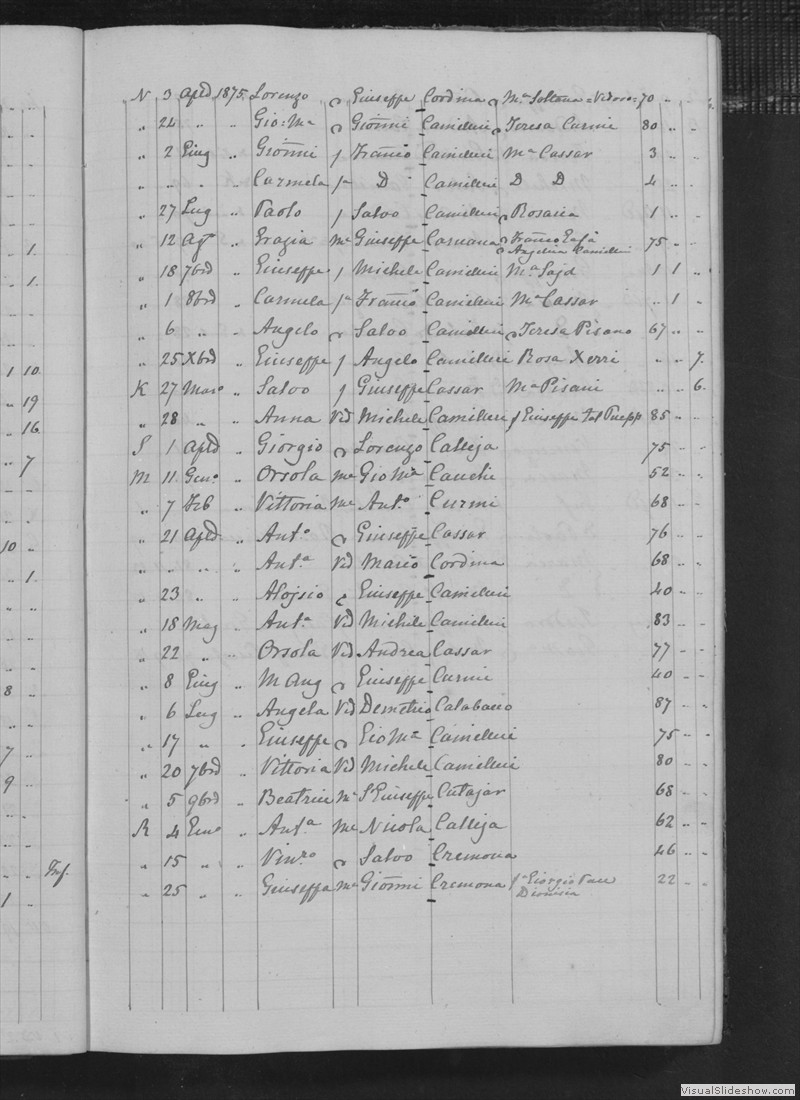 N 3 Apld 1875. Lorenzo Giuseppe Cordina Ma Soltana = Vidovo = 70 " "
" 24 " " Gio: Ma Gionni Camilleri Teresa Curmi 80 " "
" 2 Giug " Gionni f Franco Camilleri Ma Cassar 3 " "
" " " " Carmela fa D Camilleri D D 4 " "
" 27 Lug " Paolo f Salvo Camilleri Rosaria 1 " "
1. " 12 Agto " Grazia Me Giuseppe Caruana Franco
Angelica Camilleri 75 " "
1. " 18 7bre " Giuseppe f Michele Camilleri Ma Sajd 1 1 "
" 1 8bre " Carmela fa Franco Camilleri Ma Cassar " 1 "
" 6 " " Angelo Salvo Camilleri Teresa Pisano 67 " "
1 10 " 25 Xbre " Giuseppe f Angelo Camilleri Rosa Xerri " " 7.
" 19 K 27 Maro " Salvo f Giuseppe Cassar Ma Pisani " " 6.
" 16 " 28 " " Anna Vid Michele Camilleri f Giuseppe 85 " "
" 7 S 1 Apld " Giorgio Lorenzo Calleja 75 " "
M 11 Geno " Orsola Me Gio Ma Cauchi 52 " "
" 7 Feb " Vittoria Me Anto Curmi 68 " "
10 " " 21 Apld " Anto Giuseppe Cassar 76 " "
" 1. " " " " Anta Vid Mario Cordina 68 " "
" 23 " " Alojsio Giuseppe Camilleri 40 " "
" 18 Mag " Anta Vid Michele Camilleri 83 " "
" 22 " " Orsola Vid Andrea Cassar 77 " "
8 " " 8 Giug " M Ang Giuseppe Curmi 40 " "
" 6 Lug " Angela Vid Demetrio Calabacio 87 " "
7 " " 17 " " Giuseppe Gio Ma Camilleri 75 " "
9 " " 20 7bre " Vittoria Vid Michele Camilleri 80 " "
" 5 9bre " Beatrice Me S Giuseppe Cutajar 68 " "
R 4 Geno " Anta Me Nicola Calleja 62 " "
Inf. " 15 " " Vinzo Salvo Cremona 46 " "
1 " " 25 " " Giuseppa Me Gionni Cremona fa Giorgio
Dionisia 22 " "
VisualSlideshow.com